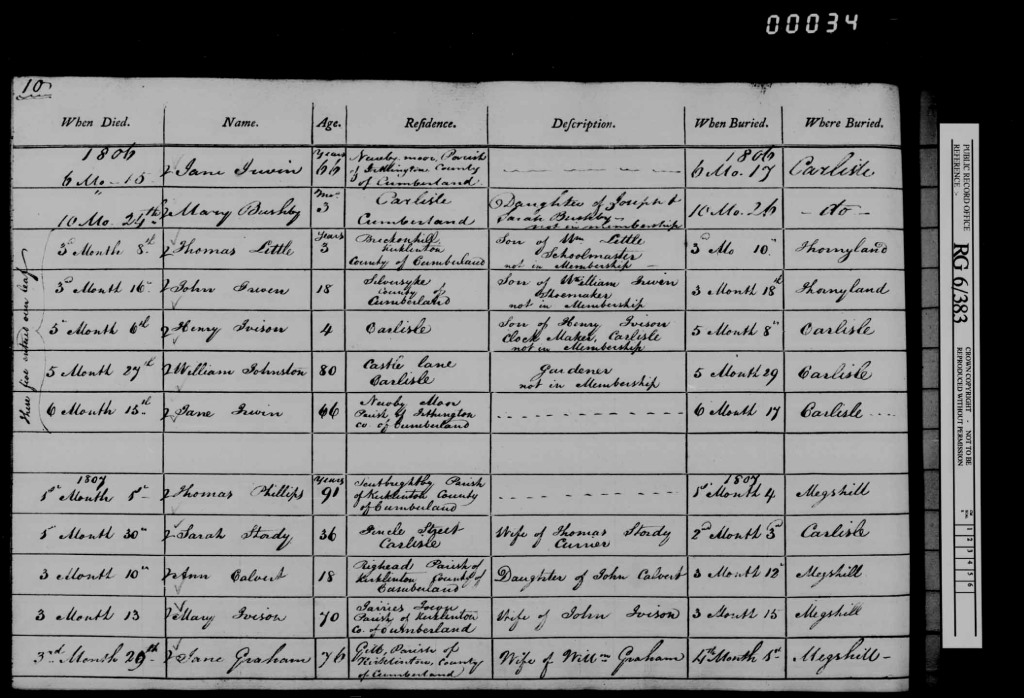 00034
10
When Died. Name. Age. Residence. Description. When Buried. Where Buried.
1806 Years Newby moor, Parish 1806
6 Mo. 15 Jane Irwin 66 of Irthington County 6 Mo. 17 Carlisle
of Cumberland
Mos Carlisle Daughter of Joseph &
10 Mo. 24th Mary Bushby 3 Cumberland Sarah Bushby 10 Mo. 26 - do -
not in membership
Years Breckonhill Son of Wm Little
3d Month 8th Thomas Little 3 Kirklinton Schoolmaster 3d Mo 10 Thornyland
County of Cumberland not in Membership
Silversyke Son of William Irwin
3d Month 16 John Irwin 18 County of Shoemaker 3 Month 18th Thornyland
Cumberland not in Membership
Son of Henry Ivison
5 Month 6th Henry Ivison 4 Carlisle Clock Maker, Carlisle 5 Month 8 Carlisle
not in Membership
5 Month 27th William Johnston 80 Castle lane Gardener 5 Month 29 Carlisle
Carlisle not in Membership
Newby Moor
6 Month 15th Jane Irwin 66 Parish of Irthington 6 Month 17 Carlisle
Co. of Cumberland
these five entered over leaf
1807 Years Parish 1807
1st Month 1st Thomas Phillips 91 of Kirklinton County 1st Month 4 Megshill
of Cumberland
1 Month 30 Sarah Stordy 36 Street Wife of Thomas Stordy 2d Month 3d Carlisle
Carlisle Currier
Righead Parish of
3 Month 10 Ann Calvert 18 Kirklinton County of Daughter of John Calvert 3 Month 12 Megshill
Cumberland
3 Month 13 Mary Ivison 70 Parish of Kirklinton Wife of John Ivison 3 Month 15 Megshill
Co. of Cumberland
Parish of
3rd Month 29th Jane Graham 76 Kirklinton, County Wife of Willm Graham 4th Month 1st Megshill
of Cumberland
PUBLIC RECORD OFFICE
REFERENCE -
RG 6/383
CROWN COPYRIGHT - NOT TO BE
REPRODUCED WITHOUT PERMISSION
1 2 3 4 5 6